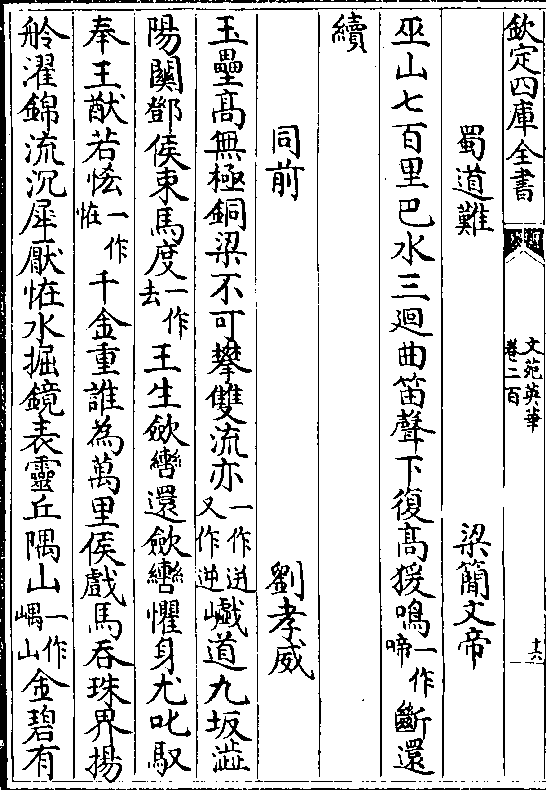 欽定四庫全書
文苑英華
卷二百
十六
蜀道難
梁簡文帝
巫山七百里巴水三迴曲笛聲下復髙猨鳴一作啼斷還
續
同前
劉孝威
玉壘髙無極銅梁不可攀雙流亦一作迸又作逆巇道九坂澁
陽關鄧侯束馬度一作去王生斂轡還斂轡懼身尤叱馭
奉王猷若恡一作恠千金重誰為萬里侯戲馬吞珠界揚
舲濯錦流沉犀厭恠水掘鏡表靈丘隅山一作嵎山金碧有